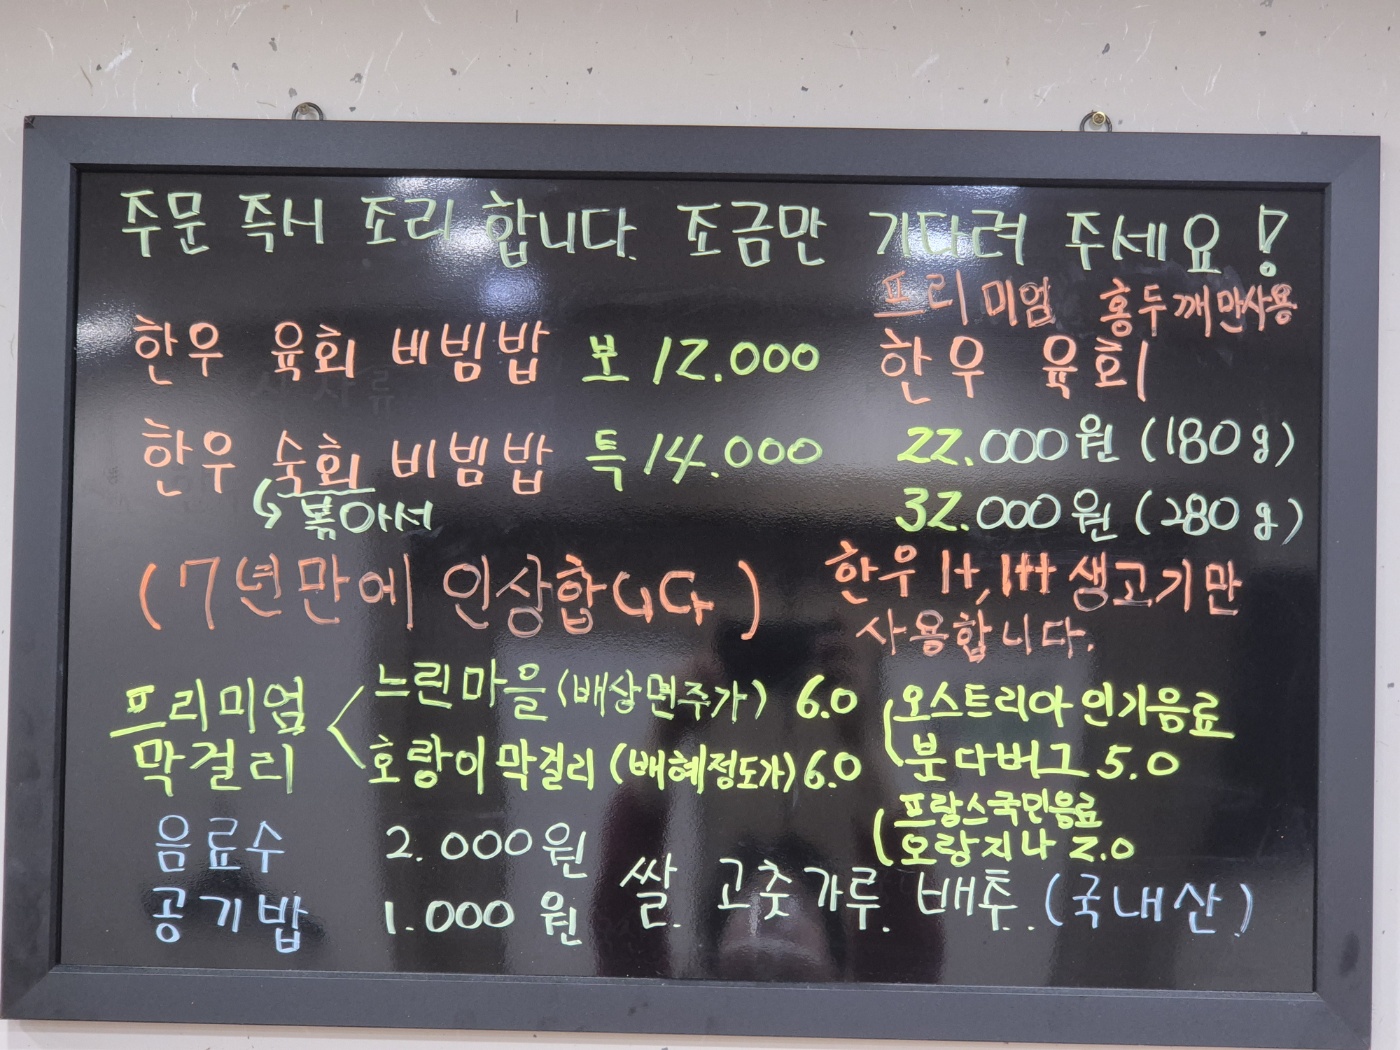 주문 즉시 조리 합니다. 조금만 기다려 주세요!
한우 육회 비빔밥 보 12.000
한우 숙회 비빔밥 특 14.000
볶아서
(7년만에 인상합니다)
프리미엄 홍두깨만사용
한우 육회
22.000원 (180g)
32.000원 (280g)
한우 1+,1++ 생고기만
사용합니다.
프리미엄
막걸리
느린마을 (배상면주가) 6.0
호랑이 막걸리 (배혜정도가) 6.0
오스트리아 인기음료
분다버그 5.0
프랑스국민음료
오랑지나 2.0
음료수 2.000원
공기밥 1.000원
쌀. 고춧가루. 배추.. (국내산)